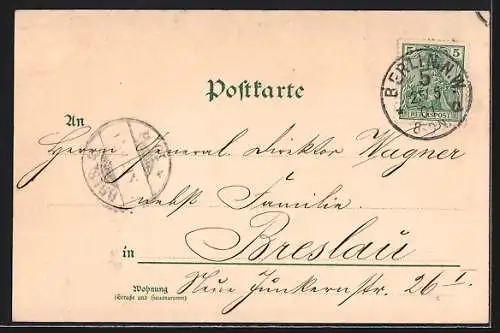 5 5
BERLIN N.W.
5
REICHSPOST
8-9N
Postkarte
An
Herrn General Direktor Wagner
nebst Familie
in Breslau
Wohnung
(Straße und Hausnummer)
Neue Junkernstr. 26 I.